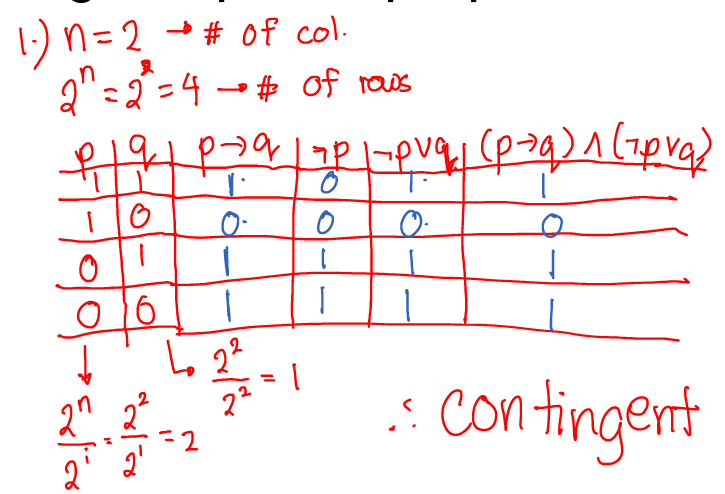 1.) n = 2 → # of col.
2ⁿ = 2² = 4 → # of rows
p | q | p → q | ¬p | ¬p∨q | (p→q) ∧ (¬p∨q)
1 | 1 | 1. | 0 | 1. | 1
1 | 0 | 0. | 0 | 0. | 0
0 | 1 | 1 | 1 | 1 | 1
0 | 0 | 1 | 1 | 1 | 1
↓ ↳ 2²/2² = 1
2ⁿ/2ⁱ = 2²/2¹ = 2
∴ contingent